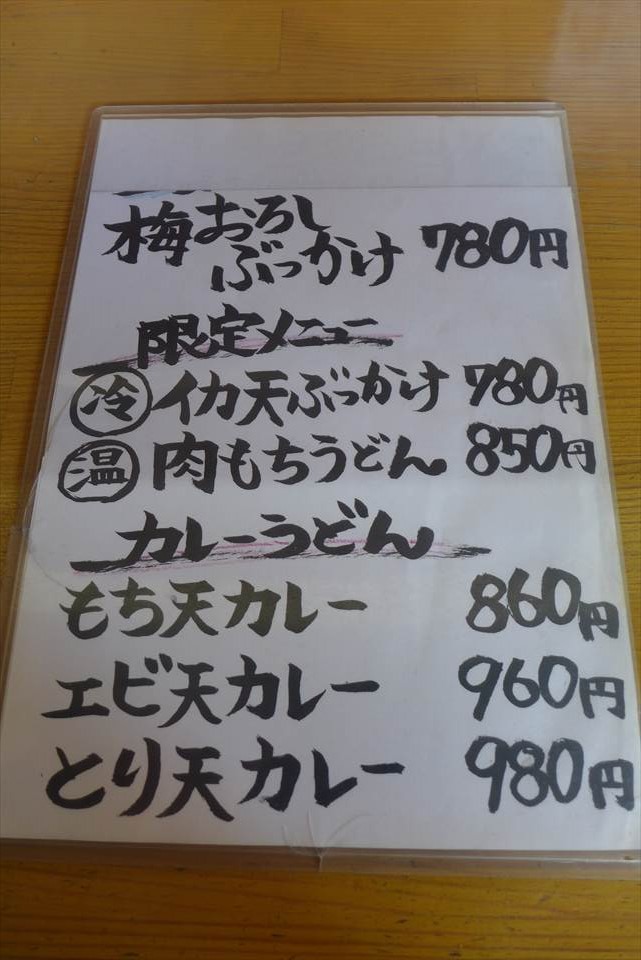 梅おろし
ぶっかけ 780円
限定メニュー
冷 イカ天ぶっかけ 780円
温 肉もちうどん 850円
カレーうどん
もち天カレー 860円
エビ天カレー 960円
とり天カレー 980円